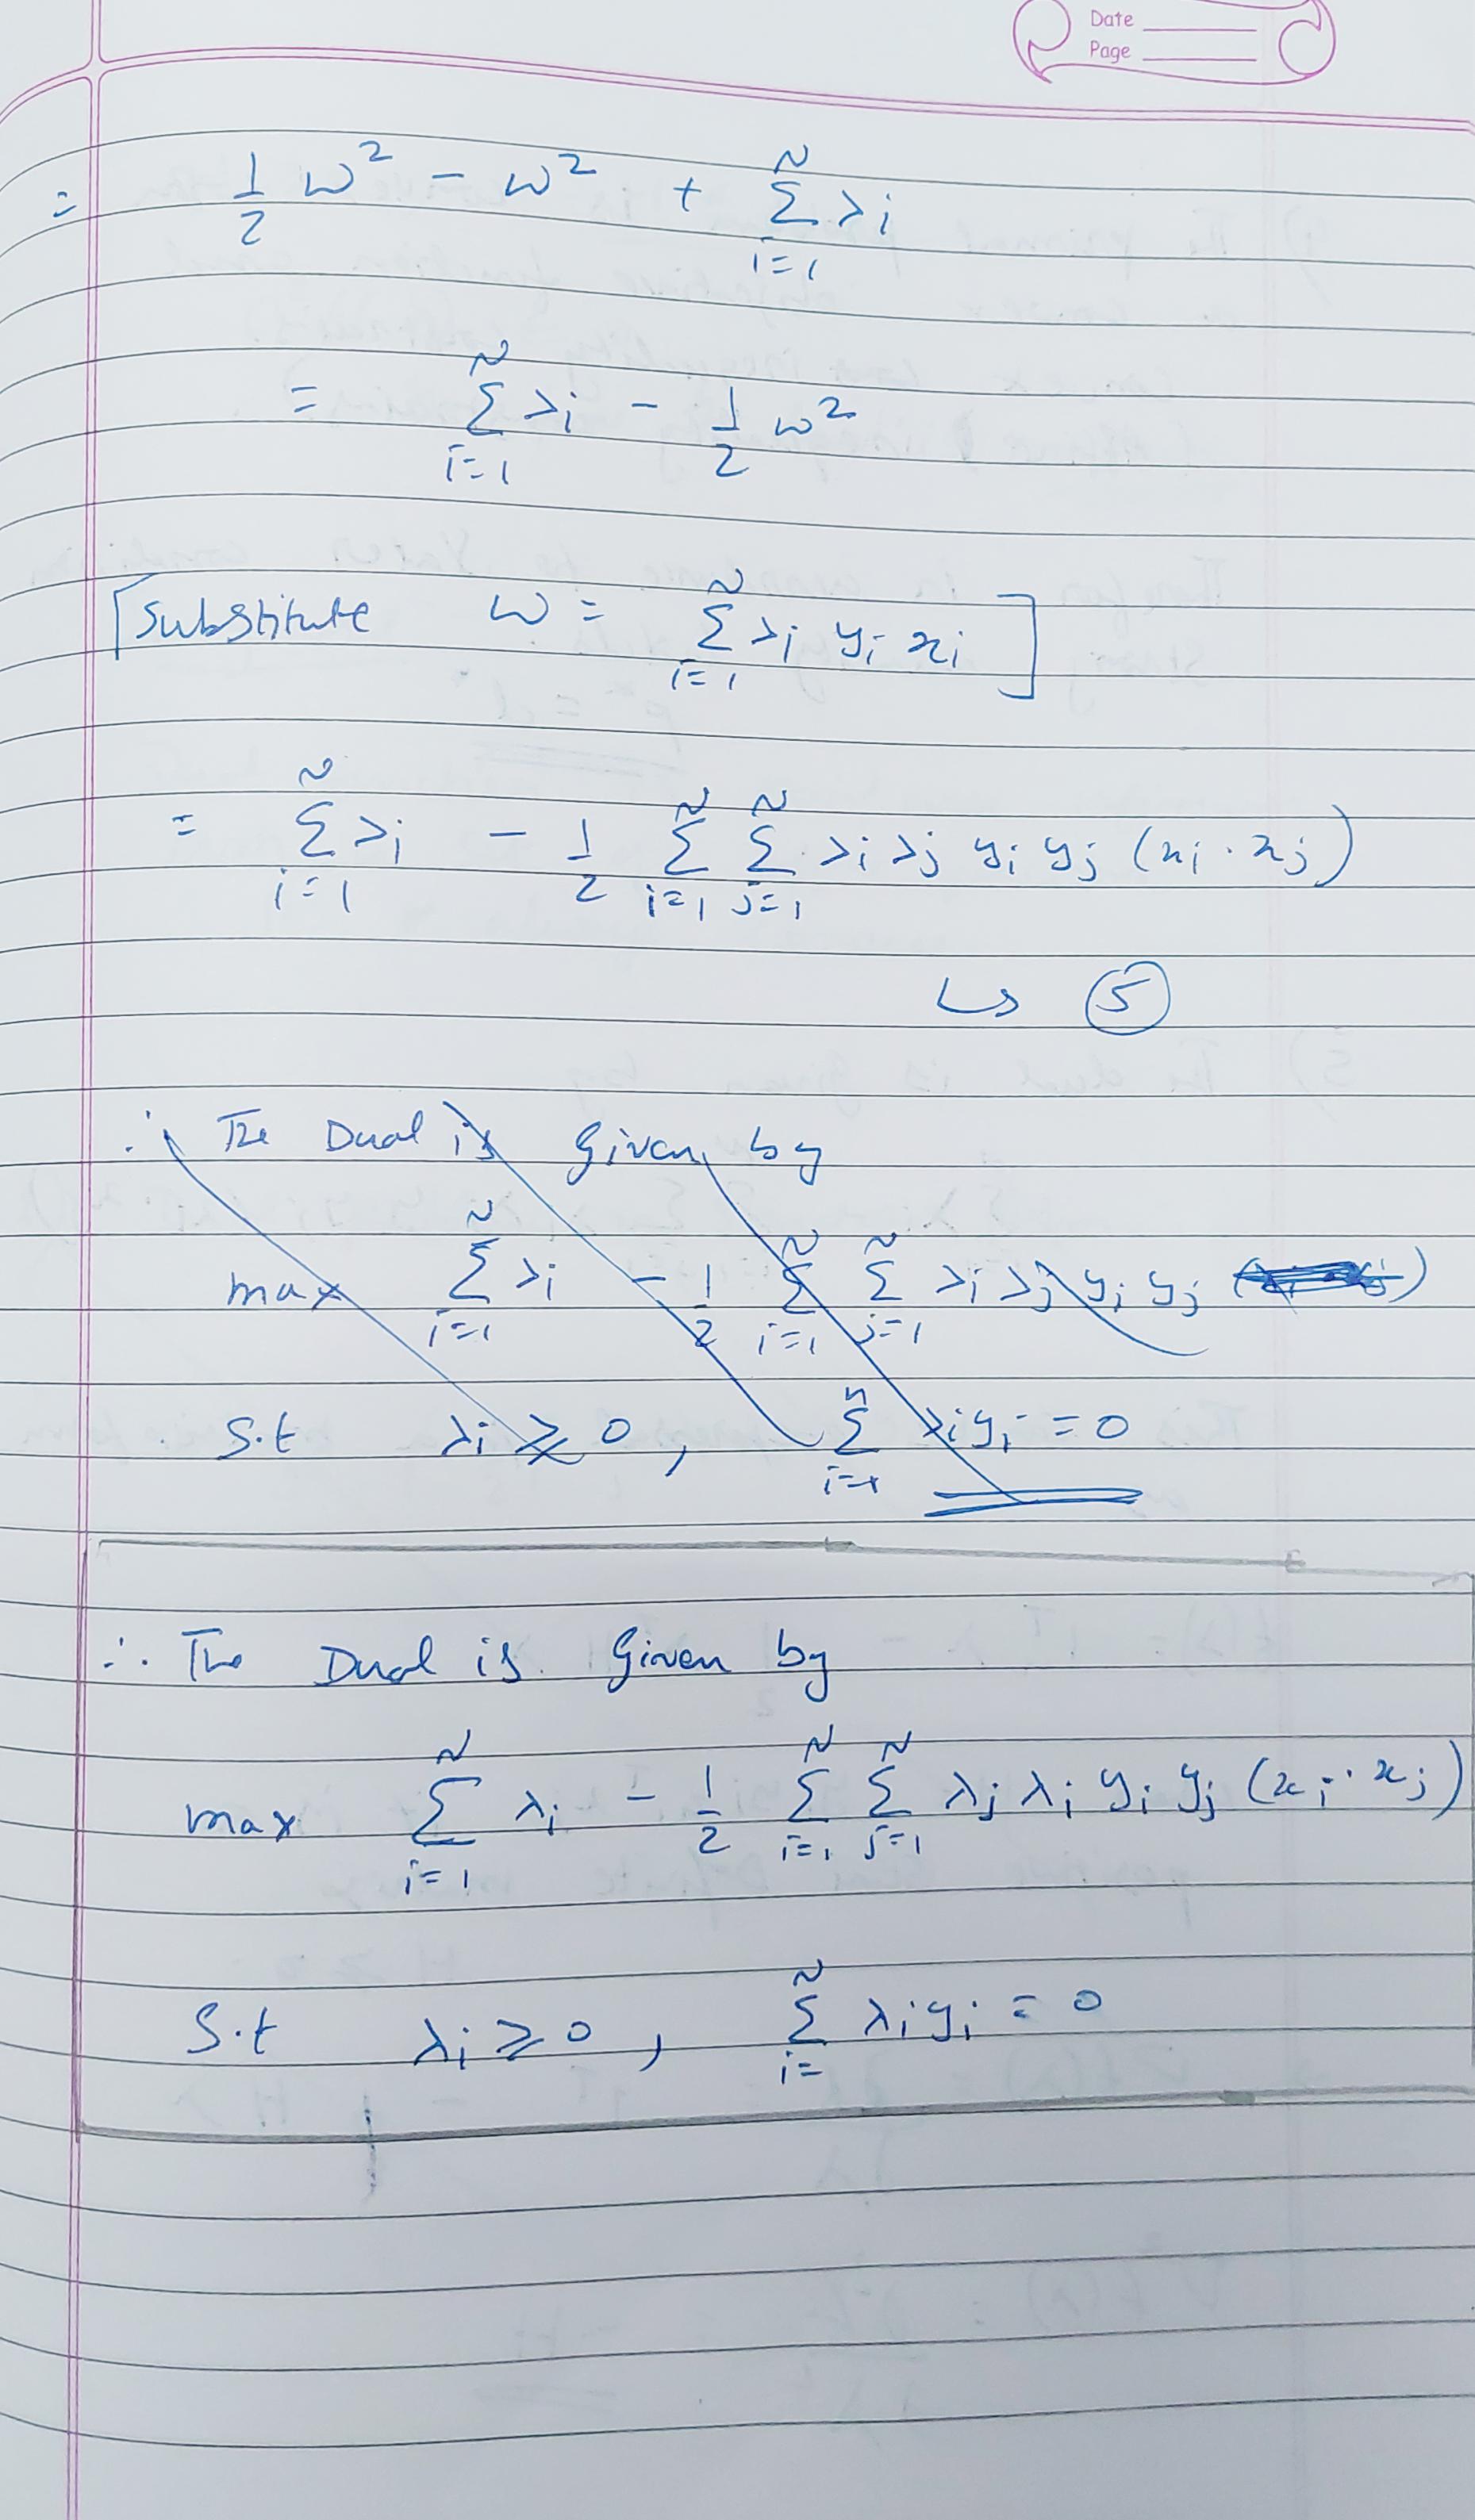 Date
Page
= 1/2 w² - w² + N Σ i=1 λi
= N Σ i=1 λi - 1/2 w²
[Substitute w = N Σ i=1 λi yi xi]
= N Σ i=1 λi - 1/2 N Σ i=1 N Σ j=1 λi λj yi yj (xi · xj)
↳ ⑤
∴ The Dual is Given by
max N Σ i=1 λi - 1/2 N Σ i=1 N Σ j=1 λi λj yi yj
S.t λi ≥ 0, n Σ i=1 λi yi = 0
∴ The Dual is Given by
max N Σ i=1 λi - 1/2 N Σ i=1 N Σ j=1 λj λi yi yj (xi · xj)
S.t λi ≥ 0, N Σ i= λi yi = 0